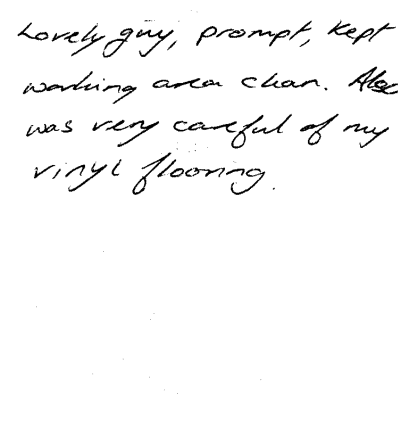 Lovely guy, prompt, kept
working area clean. Also
was very careful of my
vinyl flooring.